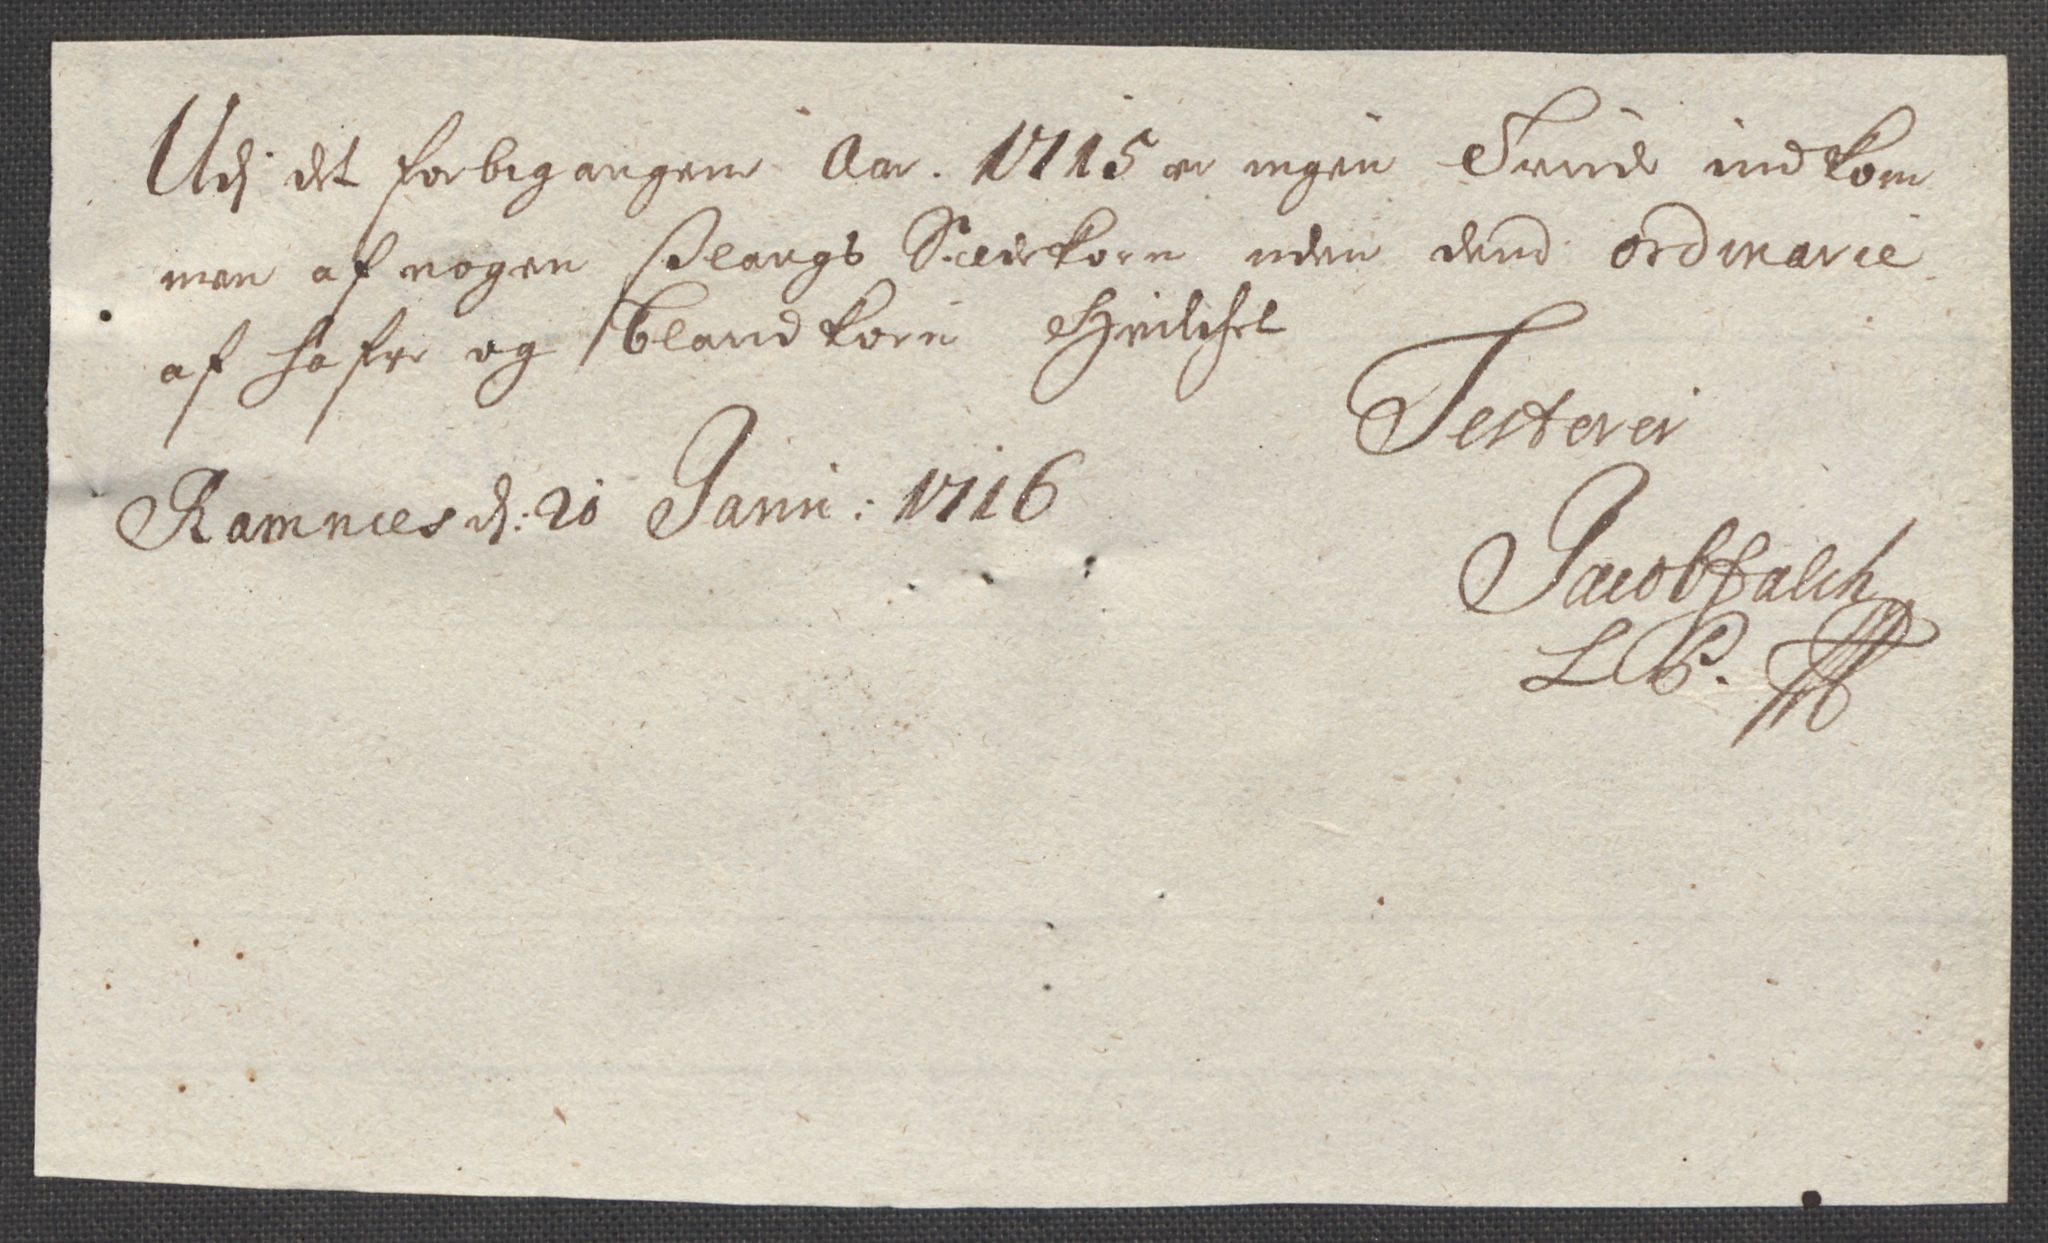 Udj det forbigangene Aar. 1715 er ingen Tiende indkom
men af nogen slangs Sæedekorn uden dend ordinarie
af hafre og blandkorn Hvilchet
Testerer
Ramnæs d: 20 Janu: 1716
Jacob Falch